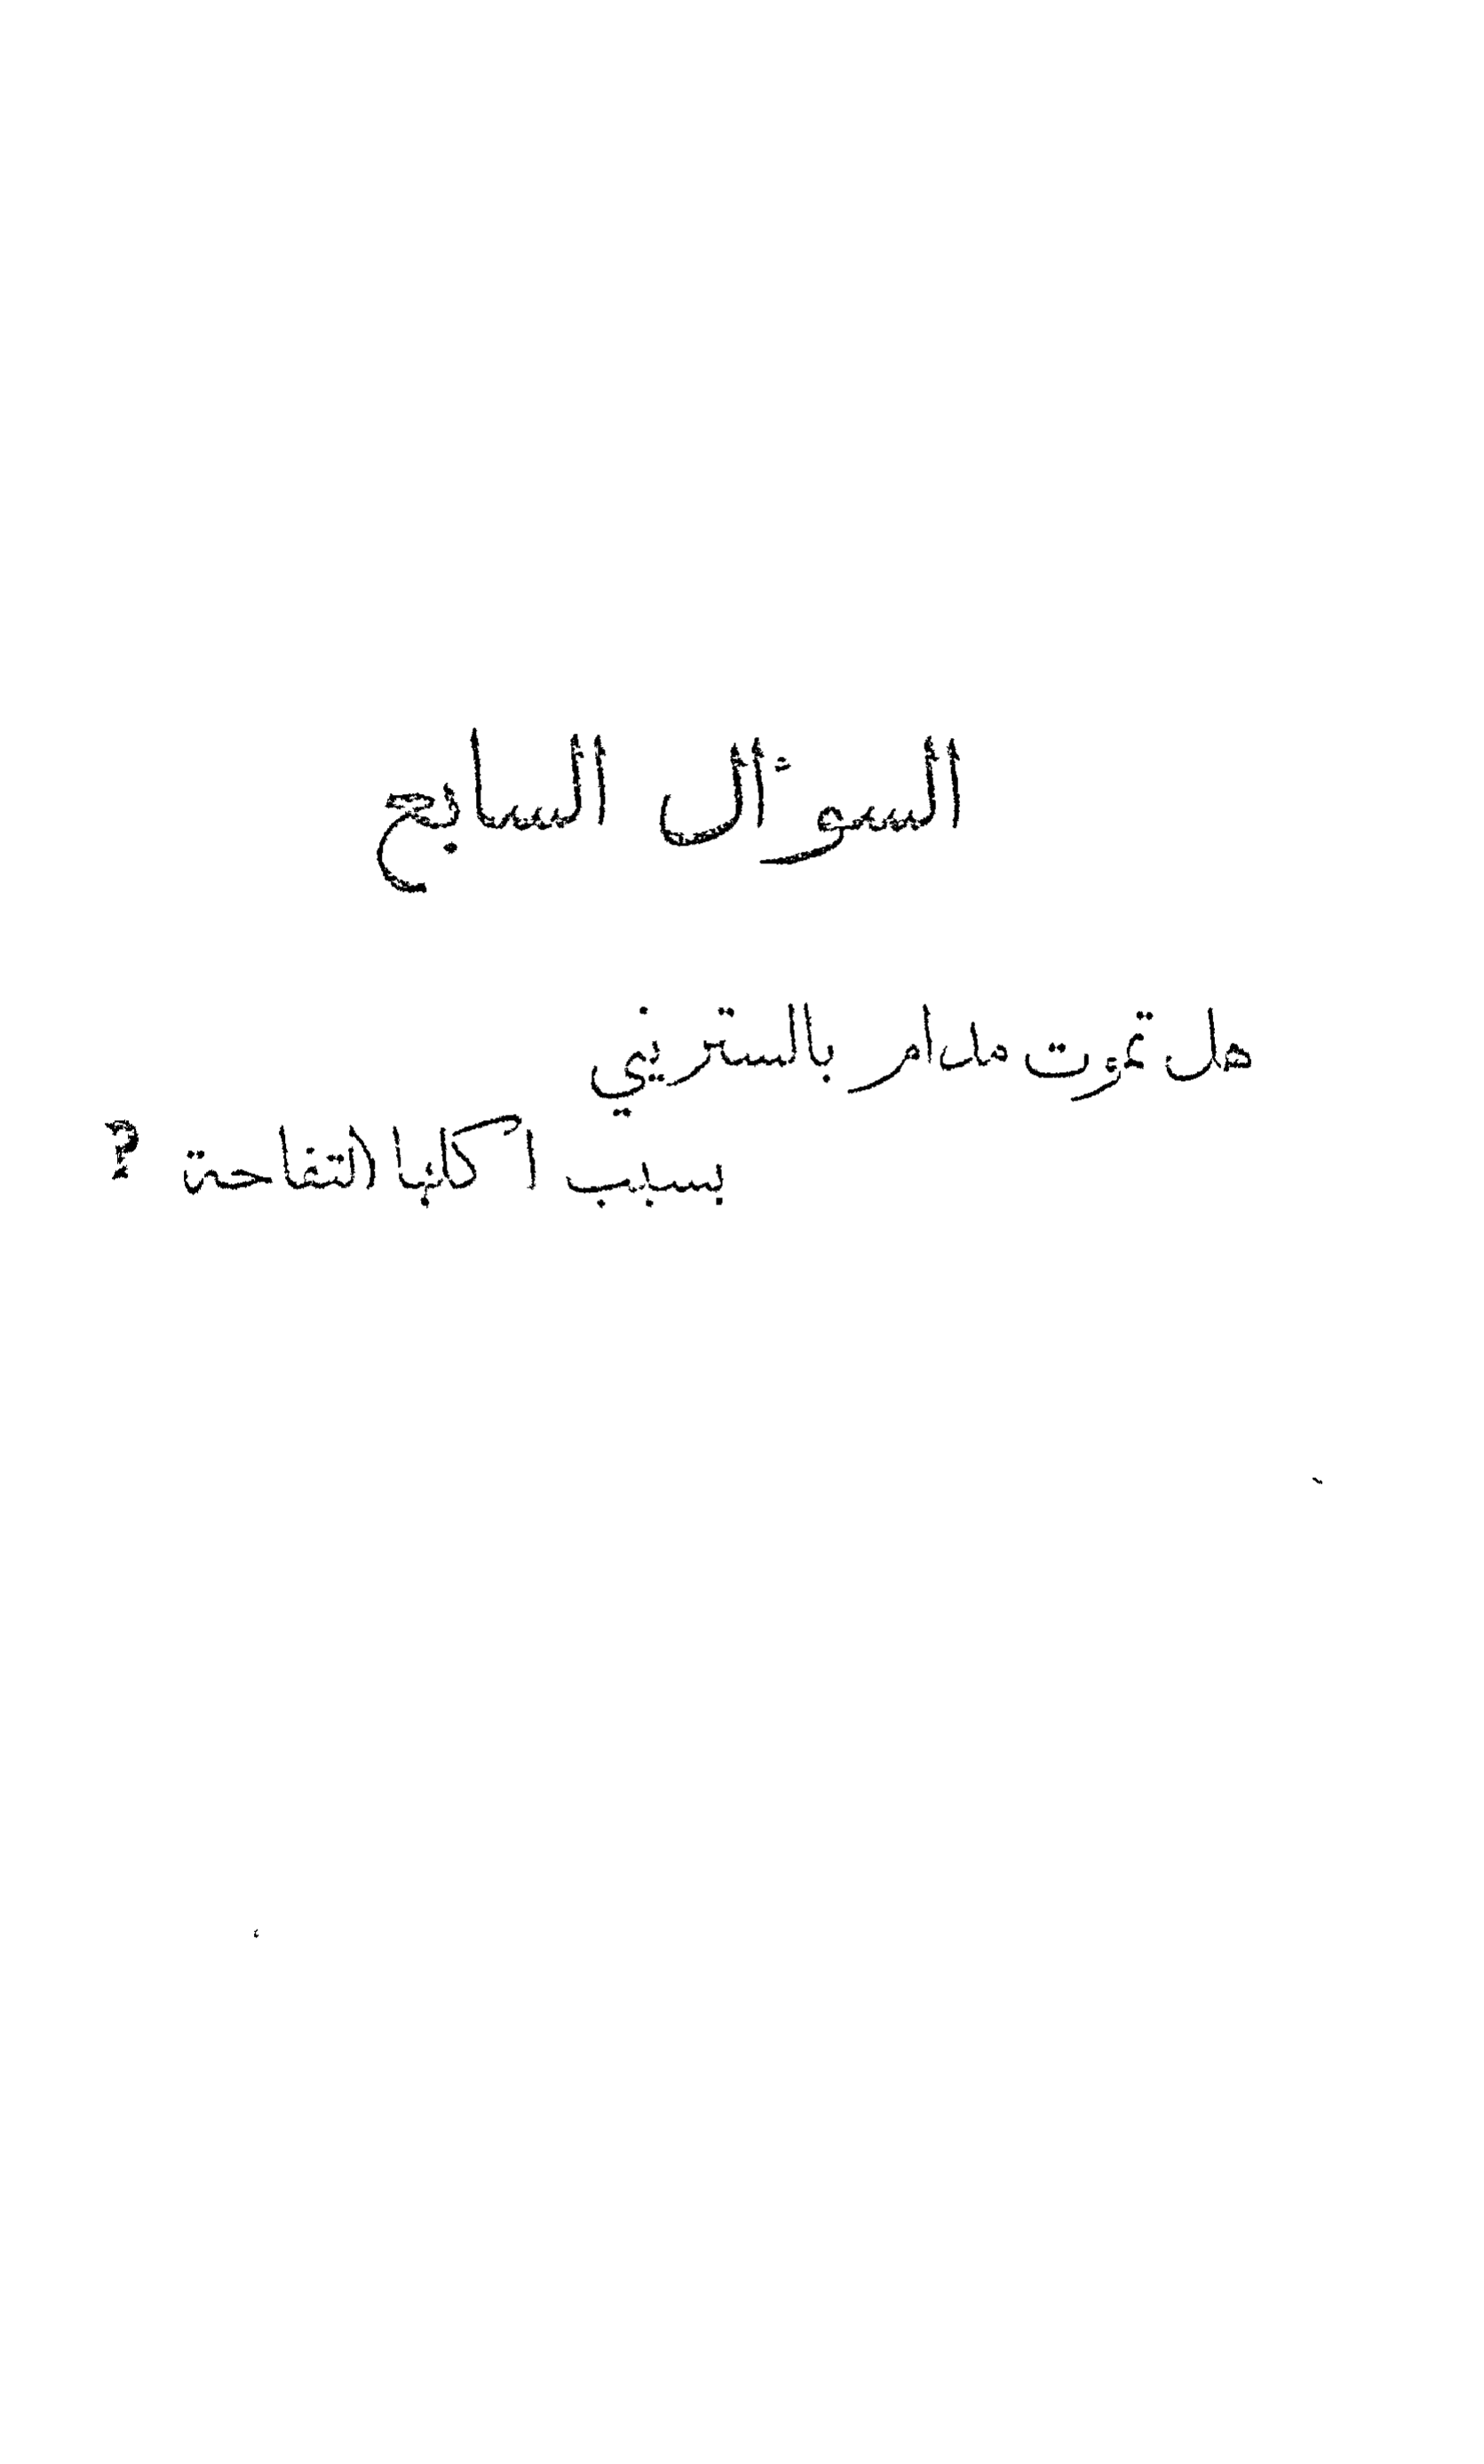 السؤال السابع
هل تموت مدام بالستريني
بسبب اكلها التفاحة ?